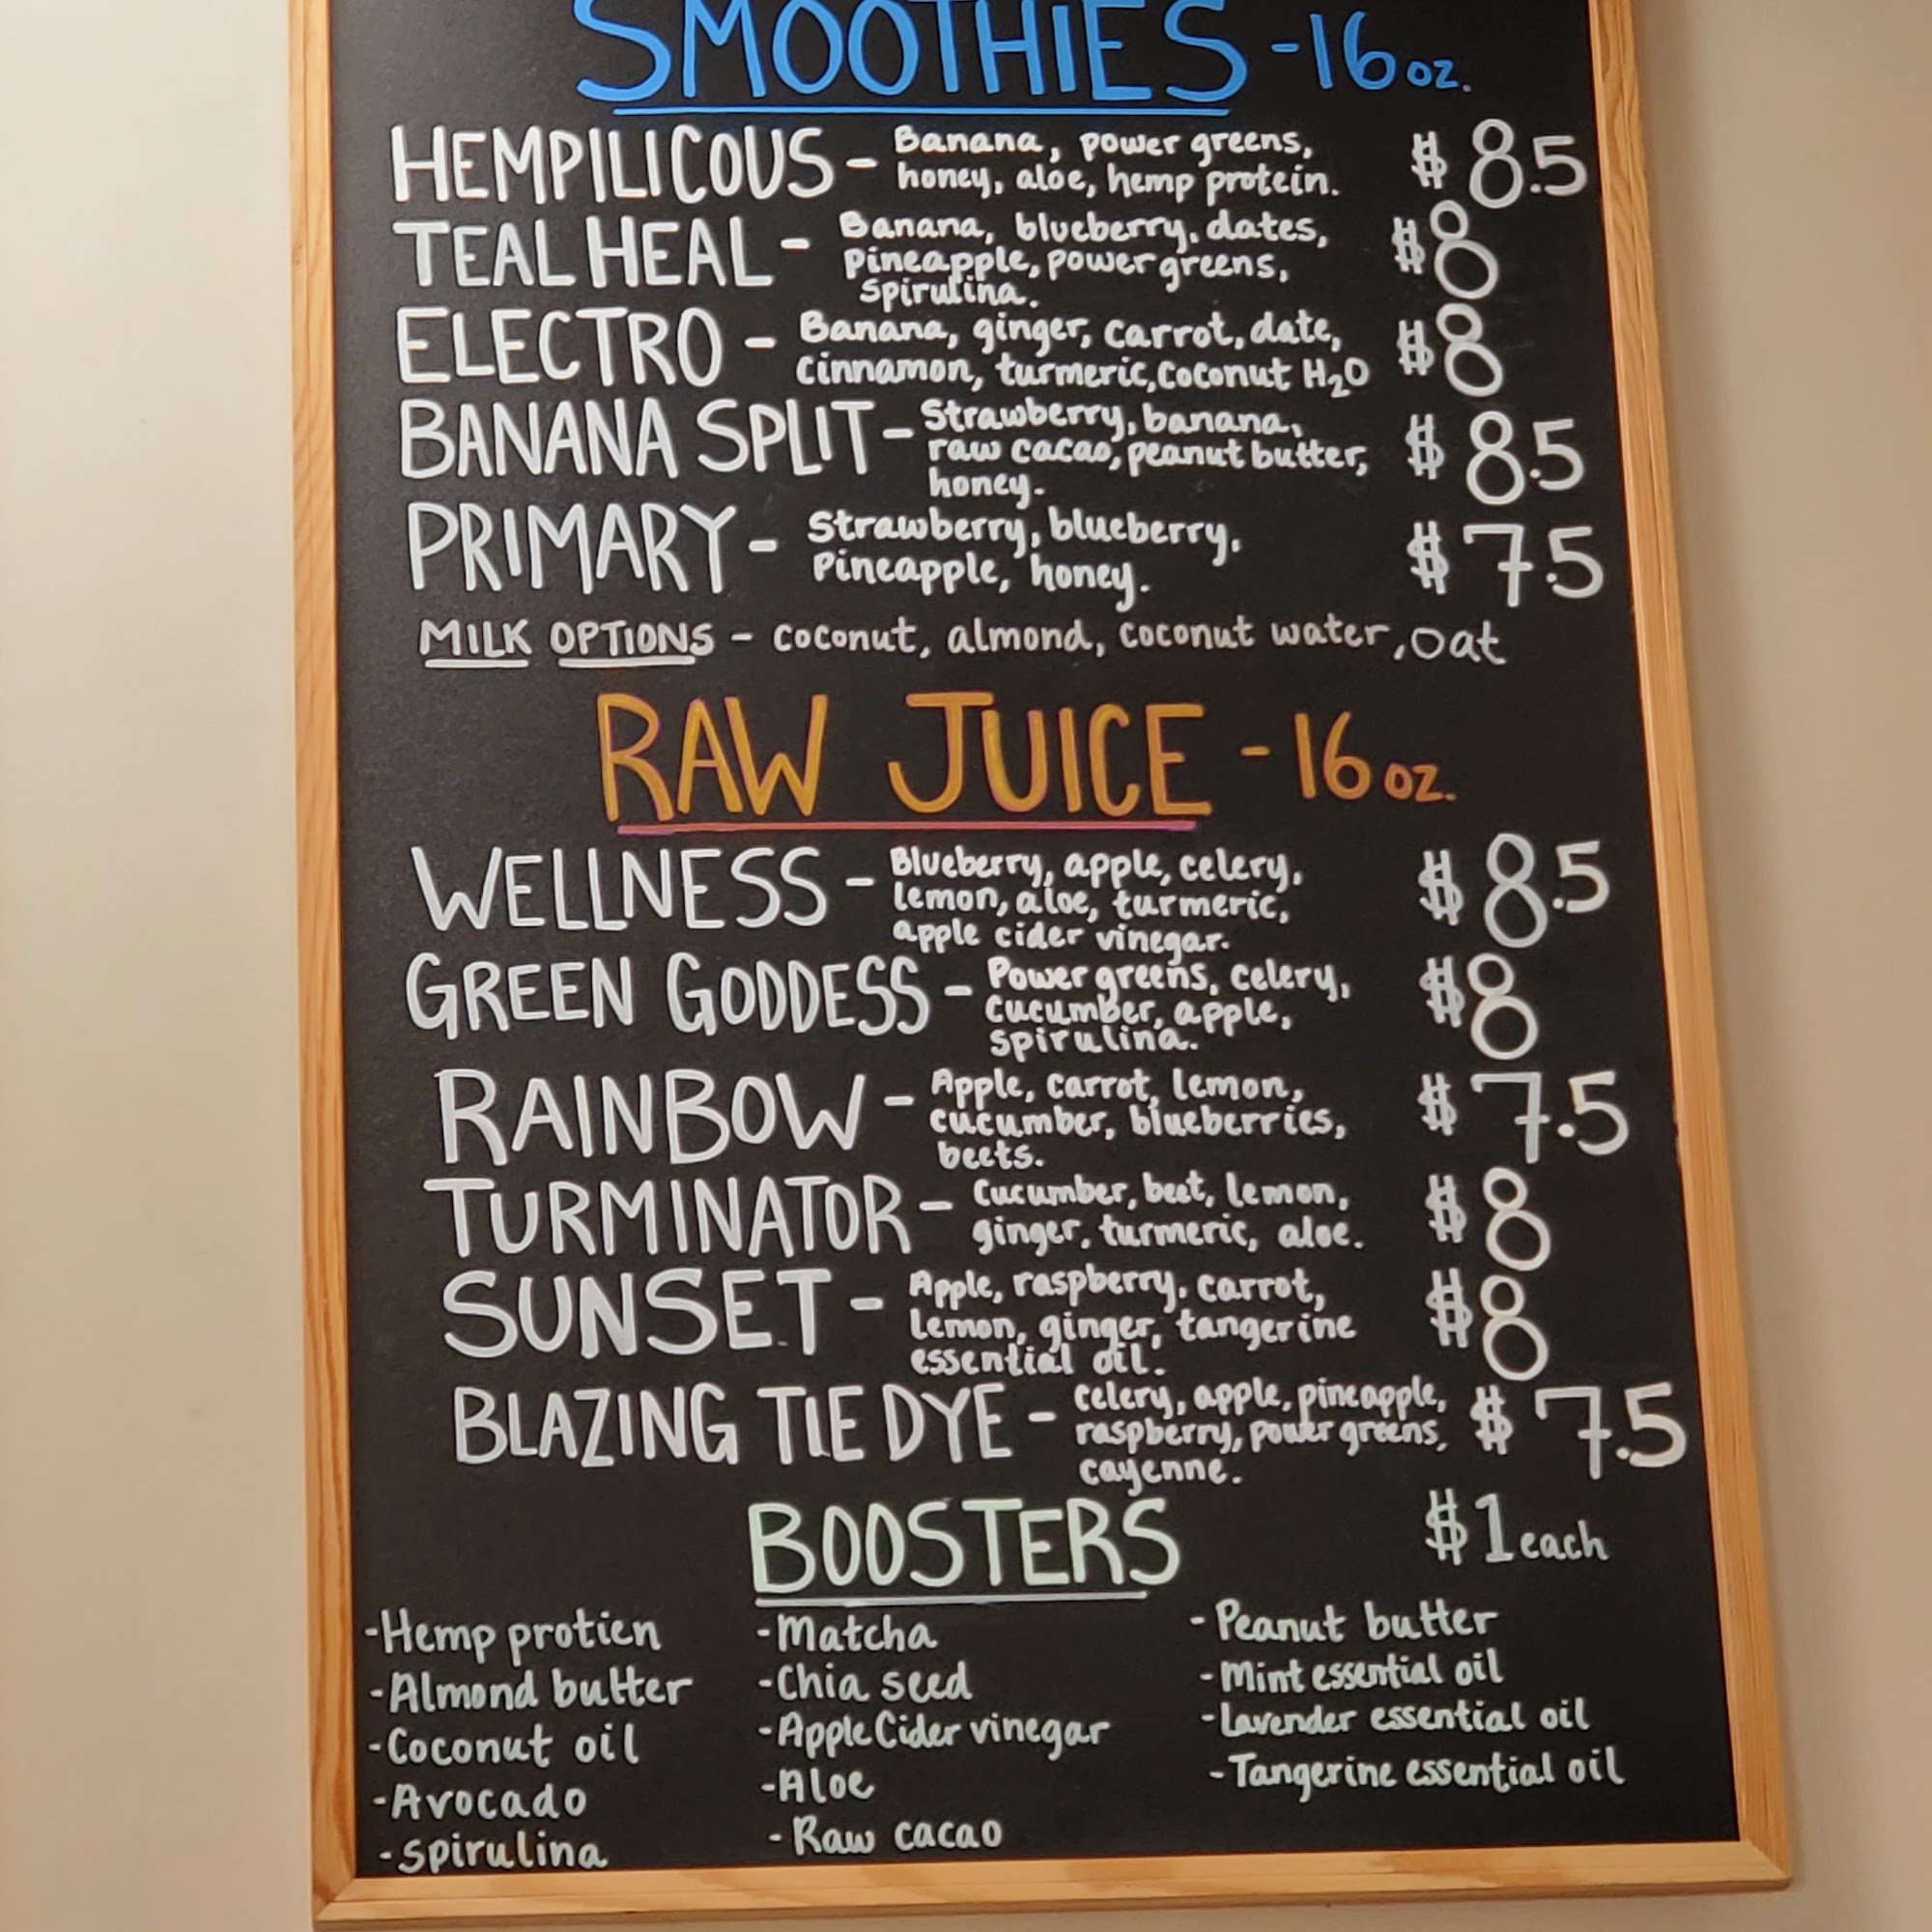 SMOOTHIES - 16 oz.
HEMPILICOUS - Banana, power greens, $8.5
honey, aloe, hemp protein.
TEAL HEAL - Banana, blueberry, dates, $8
pineapple, power greens,
spirulina.
ELECTRO - Banana, ginger, carrot, date, $8
cinnamon, turmeric, coconut H₂O
BANANA SPLIT - Strawberry, banana, $8.5
raw cacao, peanut butter,
honey.
PRIMARY - Strawberry, blueberry, $7.5
Pineapple, honey.
MILK OPTIONS - coconut, almond, coconut water, oat
RAW JUICE - 16 oz.
WELLNESS - Blueberry, apple, celery, $8.5
lemon, aloe, turmeric,
apple cider vinegar.
GREEN GODDESS - Power greens, celery, $8
cucumber, apple,
spirulina.
RAINBOW - Apple, carrot, lemon, $7.5
cucumber, blueberries,
beets.
TURMINATOR - Cucumber, beet, lemon, $8
ginger, turmeric, aloe.
SUNSET - Apple, raspberry, carrot, $8
Lemon, ginger, tangerine
essential oil.
BLAZING TIE DYE - celery, apple, pineapple, $7.5
raspberry, power greens,
cayenne.
BOOSTERS $1 each
-Hemp protien
-Almond butter
-Coconut oil
-Avocado
-Spirulina
-Matcha
-Chia seed
-Apple Cider vinegar
-Aloe
-Raw cacao
-Peanut butter
-Mint essential oil
-Lavender essential oil
-Tangerine essential oil